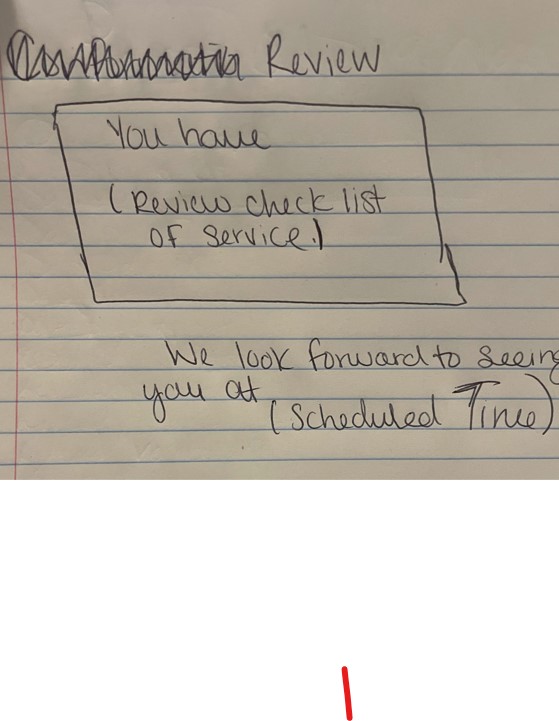 Review
You have
(Review check list
of service.)
We look forward to seeing
you at
(Scheduled Time)